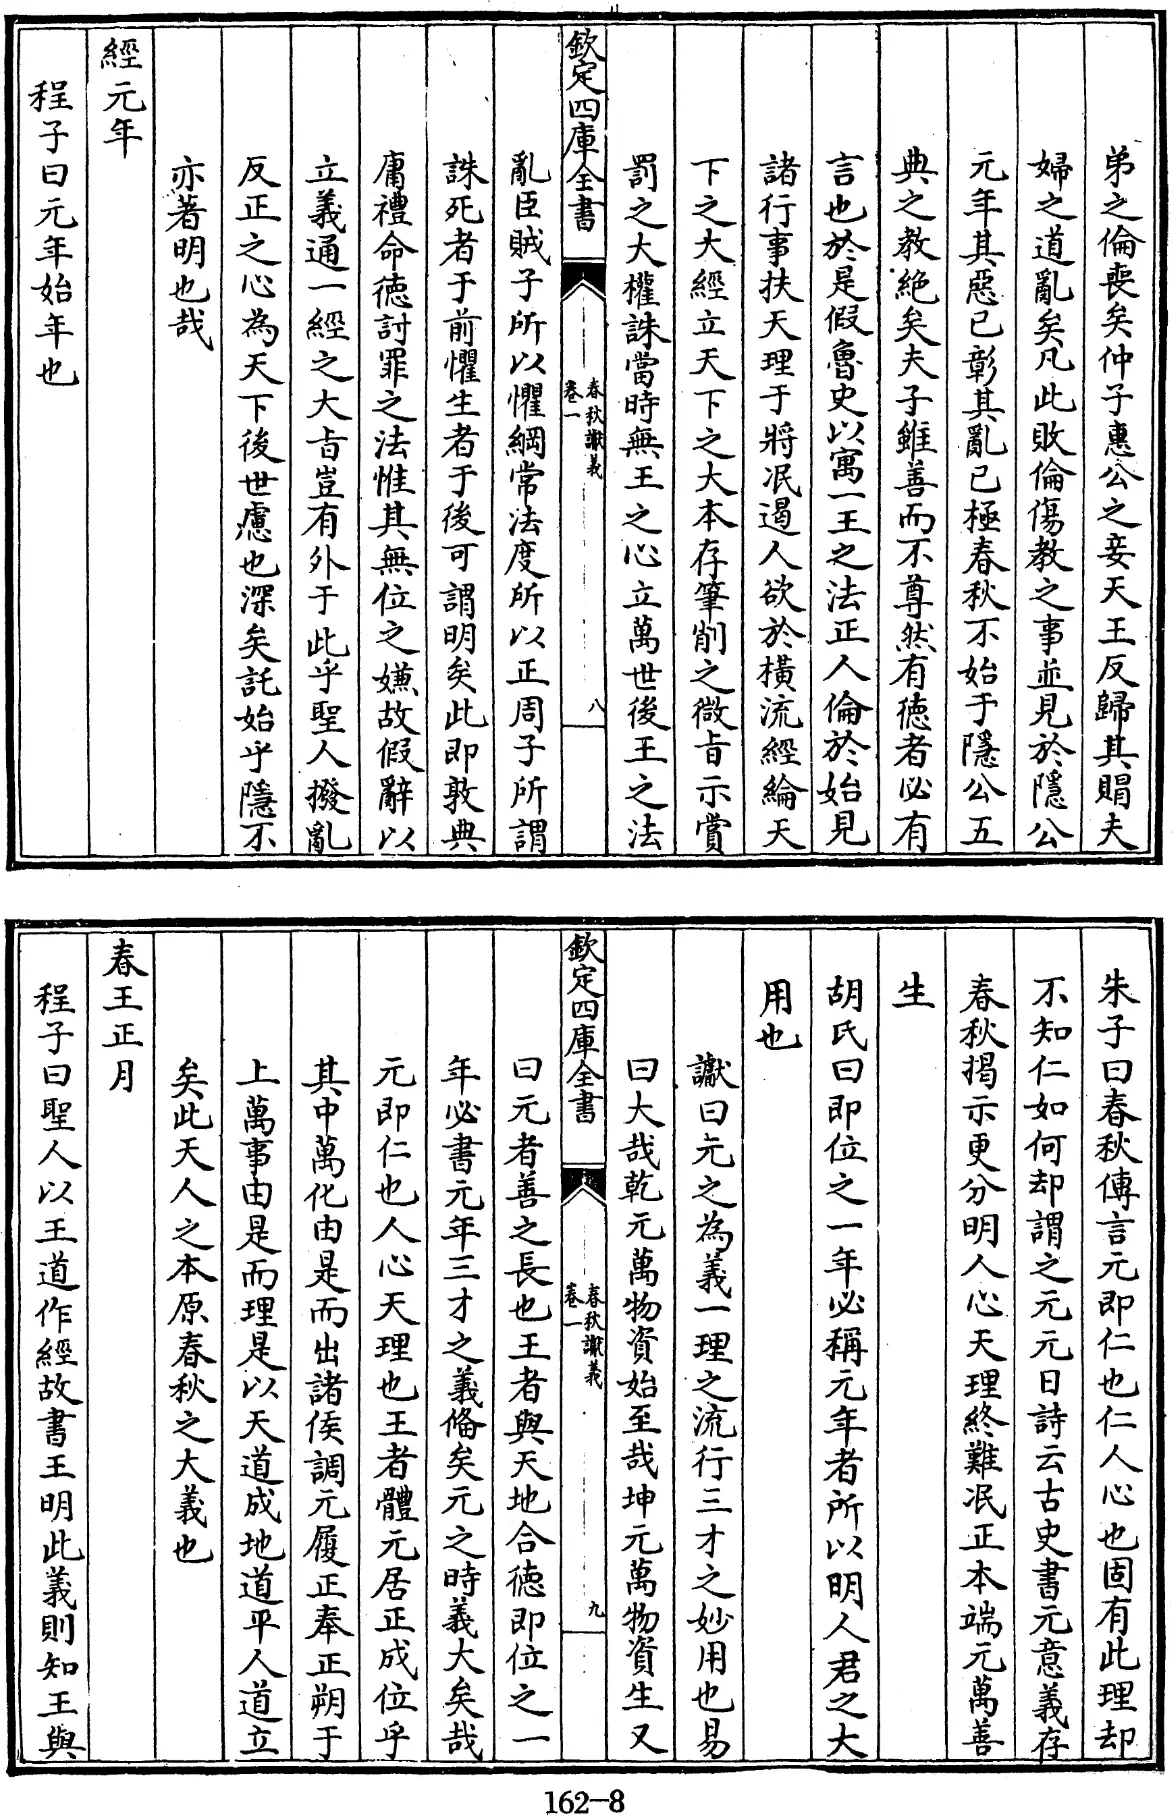 弟之倫喪矣仲子惠公之妾天王反歸其賵夫
婦之道亂矣凡此敗倫傷教之事並見於隱公
元年其惡已彰其亂已極春秋不始于隱公五
典之教絶矣夫子雖善而不尊然有徳者必有
言也於是假魯史以寓一王之法正人倫於始見
諸行事扶天理于將泯遏人欲於橫流經綸天
下之大經立天下之大本存筆削之微㫖示賞
罰之大權誅當時無王之心立萬世後王之法
欽定四庫全書
春秋讞義
卷一
八
亂臣賊子所以懼綱常法度所以正周子所謂
誅死者于前懼生者于後可謂明矣此即敦典
庸禮命徳討罪之法惟其無位之嫌故假辭以
立義通一經之大㫖豈有外于此乎聖人撥亂
反正之心為天下後世慮也深矣託始乎隱不
亦著明也哉
經元年
程子曰元年始年也
朱子曰春秋傳言元即仁也仁人心也固有此理却
不知仁如何却謂之元元日詩云古史書元意義存
春秋揭示更分明人心天理終難泯正本端元萬善
生
胡氏曰即位之一年必稱元年者所以明人君之大
用也
讞曰元之為義一理之流行三才之妙用也易
曰大哉乾元萬物資始至哉坤元萬物資生又
欽定四庫全書
春秋讞義
卷一
九
曰元者善之長也王者與天地合徳即位之一
年必書元年三才之義俻矣元之時義大矣哉
元即仁也人心天理也王者體元居正成位乎
其中萬化由是而出諸侯調元履正奉正朔于
上萬事由是而理是以天道成地道平人道立
矣此天人之本原春秋之大義也
春王正月
程子曰聖人以王道作經故書王明此義則知王與
162-8